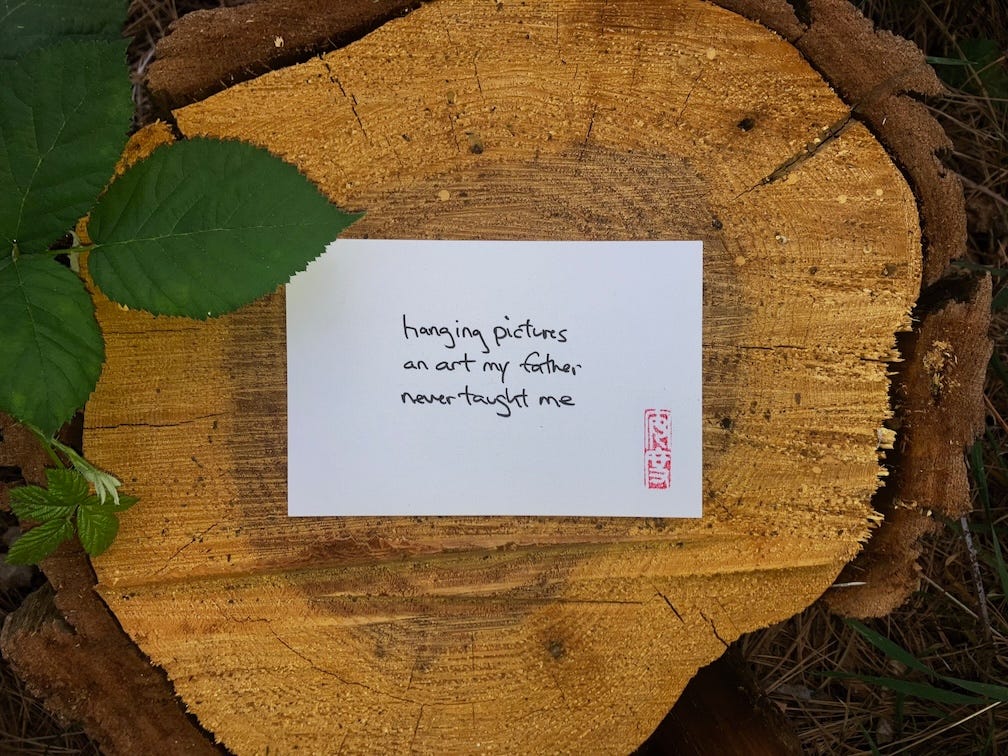 hanging pictures
an art my father
never taught me